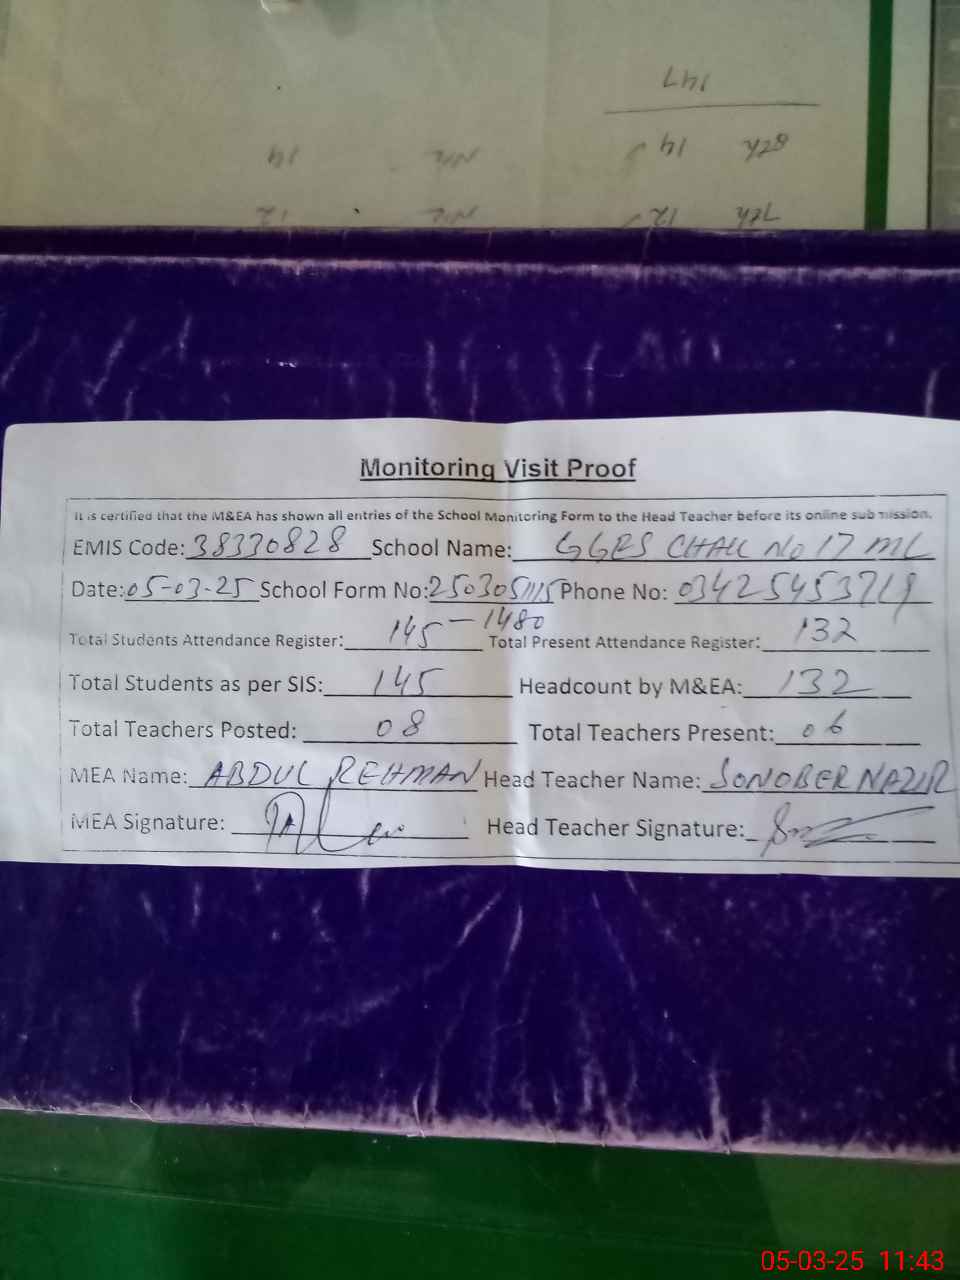 147
8th 14 Nil 14
7th 12 Nil 12
Monitoring Visit Proof
It is certified that the M&EA has shown all entries of the School Monitoring Form to the Head Teacher before its online submission.
EMIS Code: 38330828 School Name: GGES CHAK No 17 ML
Date: 05-03-25 School Form No: 2503051115 Phone No: 03425453719
-1480
Total Students Attendance Register: 145 Total Present Attendance Register: 132
Total Students as per SIS: 145 Headcount by M&EA: 132
Total Teachers Posted: 08 Total Teachers Present: 06
MEA Name: ABDUL REHMAN Head Teacher Name: SONOBER NAZIR
MEA Signature: Head Teacher Signature:
05-03-25 11:43